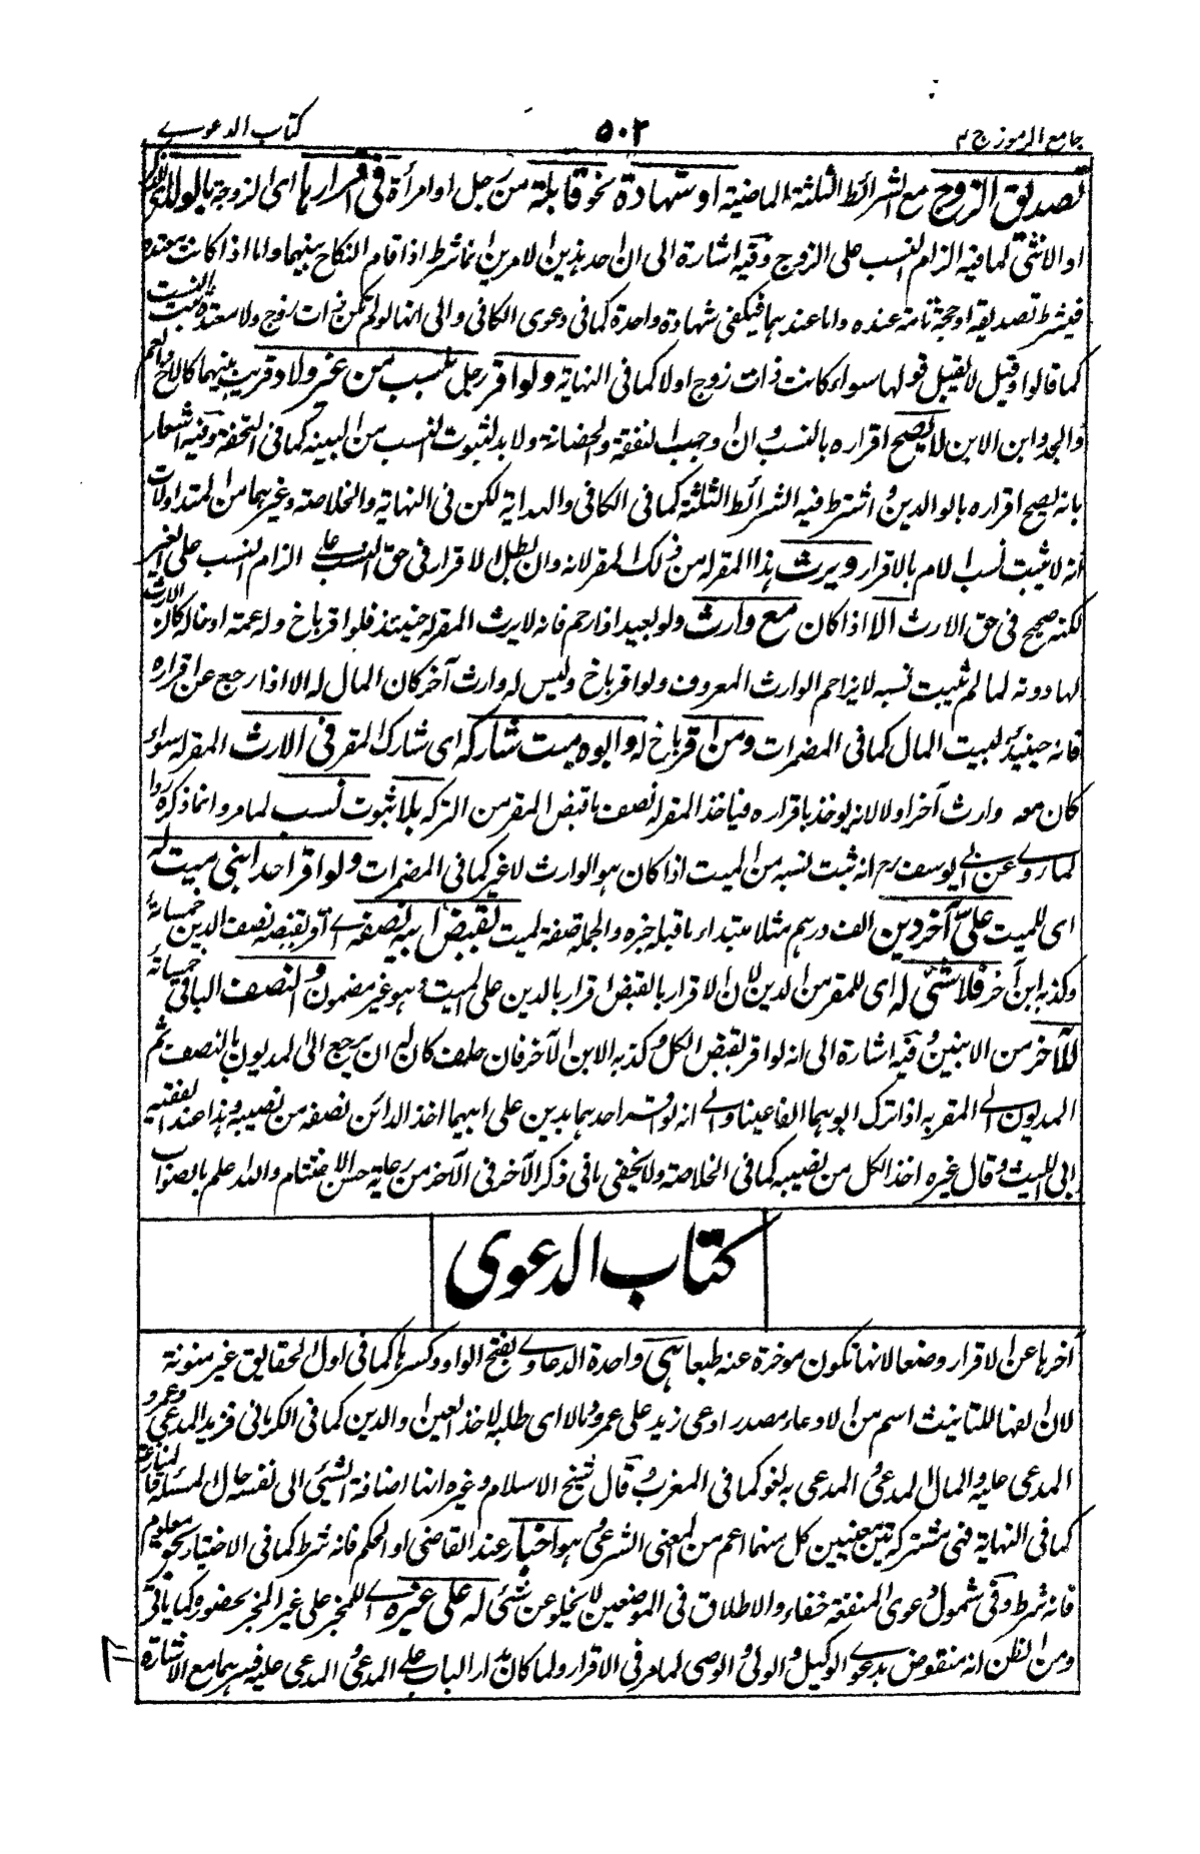 جامع الرموز ج ٢
٥٠٢
كتاب الدعوے
تصديق الزوج مع الشرائط الثلثة الماضية او شهادة نحو قابلة من رجل او امرأة فى اقرارها اى الزوجة بالولد الذكر
او الانثى لما فيه الزام النسب على الزوج وفيه اشارة الى ان احد هذين الامرين انما شرط اذا قام النكاح بينهما واما اذا كانت معتدة
فيشرط تصديقه او حجة تامة عنده واما عندهما فيكفى شهادة واحدة كما فى دعوى الكافى والى انها لو لم تكن ذات زوج ولا معتدة ثبت النسب
كما قالوا وقيل لا يقبل قولها سواء كانت ذات زوج او لا كما فى النهاية ولو اقر رجل بنسب من غير ولاد قريب بينهما كالاخ والعم
والجد وابن الابن لا يصح اقراره بالنسب وان وجب النفقة والحضانة ولا بد لثبوت النسب من البينه كما فى التحفة وفيه اشعار
بانه يصح اقراره بالوالدين واشترط فيه الشرائط الثلثة كما فى الكافى والهداية لكن فى النهاية والخلاصة وغيرهما من المتداولات
انه لا يثبت نسب الام بالاقرار ويرث هذا المقر له من ذلك المقر لانه وان بطل الاقرار فى حق النسب على الزام النسب على الغير
لكنه صحيح فى حق الارث الا اذا كان مع وارث ولو بعيدا ذا رحم فانه لا يرث المقر له حينئذ فلو اقر باخ وله عمة او خالة كان الارث
لها دونه لما لم يثبت نسبه لا يزاحم الوارث المعروف ولو اقر باخ وليس له وارث آخر كان المال له الا اذا رجع عن اقراره
فانه حينئذ لبيت المال كما فى المضمرات ومن اقر باخ له وابوه ميت شاركه اى شارك المقر فى الارث المقر له سواء
كان معه وارث آخر او لا لانه يوخذ باقراره فياخذ المقر له نصف ما قبض المقر من التركه بلا ثبوت نسب لما مر وانما ذكره ردا
لما روے عن ابى يوسف رح انه ثبت نسبه من الميت اذا كان هو الوارث لا غير كما فى المضمرات ولو اقر احد ابنى ميت له
اى للميت على آخر دين الف درهم مثلا مبتداء ما قبله خبره والجملة صفة لميت بقبض ابيه نصفه اے اقر بقبضه نصف الدين خمسمائة
وكذبه ابن آخر فلا شئ له اى للمقر من الدين لان الاقرار بالقبض اقرار بالدين على الميت وهو غير مضمون والنصف الباقى خمسمائة
للآخر من الابنين وفيه اشارة الى انه لو اقر بقبض الكل وكذبه الابن الآخر فان حلف كان له ان يرجع الى المديون بالنصف ثم
المديون الى المقر به اذا ترك ابوهما الفا عينا والے انه لو اقر احدهما بدين على ابيهما اخذ الدائن نصفه من نصيبه وهذا عند الفقيه
ابى الليث وقال غيره اخذ الكل من نصيبه كما فى الخلاصة ولا يخفى ما فى ذكر الآخر فى الآخر من رعاية حسن الاختتام والله اعلم بالصواب
كتاب الدعوى
آخرها عن الاقرار وضعا لانها تكون موخرة عنه طبعا هى واحدة الدعاوے بفتح الواو وكسرها كما فى اول الحقايق غير منونة
لان الفها للتانيث اسم من الادعاء مصدر ادعى زيد على عمرو مالا اى طلبه لاخذ العين او الدين كما فى الكرمانى فزيد المدعى وعمرو
المدعى عليه والمال المدعى والمدعى به لغو كما فى المغرب وقال شيخ الاسلام وغيره انها اضافة الشئ الى نفسه حال المسئلة لا المنازعة
كما فى النهاية فهى مشتركة بين معنيين كل منهما اعم من المعنى الشرعى وهو اخبار عند القاضى او الحكم فانه شرط كما فى الاختيار بحق معلوم
فانه شرط وفى شمول دعوى المنفعة خفاء والاطلاق فى الموضعين لا يخلو عن شئ له على غيره اے للمخبر على غير المخبر بحضوره كما ياتى
ومن الظن انه منقوض بدعوے الوكيل والولى والوصى لما مر فى الاقرار ولما كان مدار الباب على المدعى والمدعى عليه فسرهما مع الاشارة